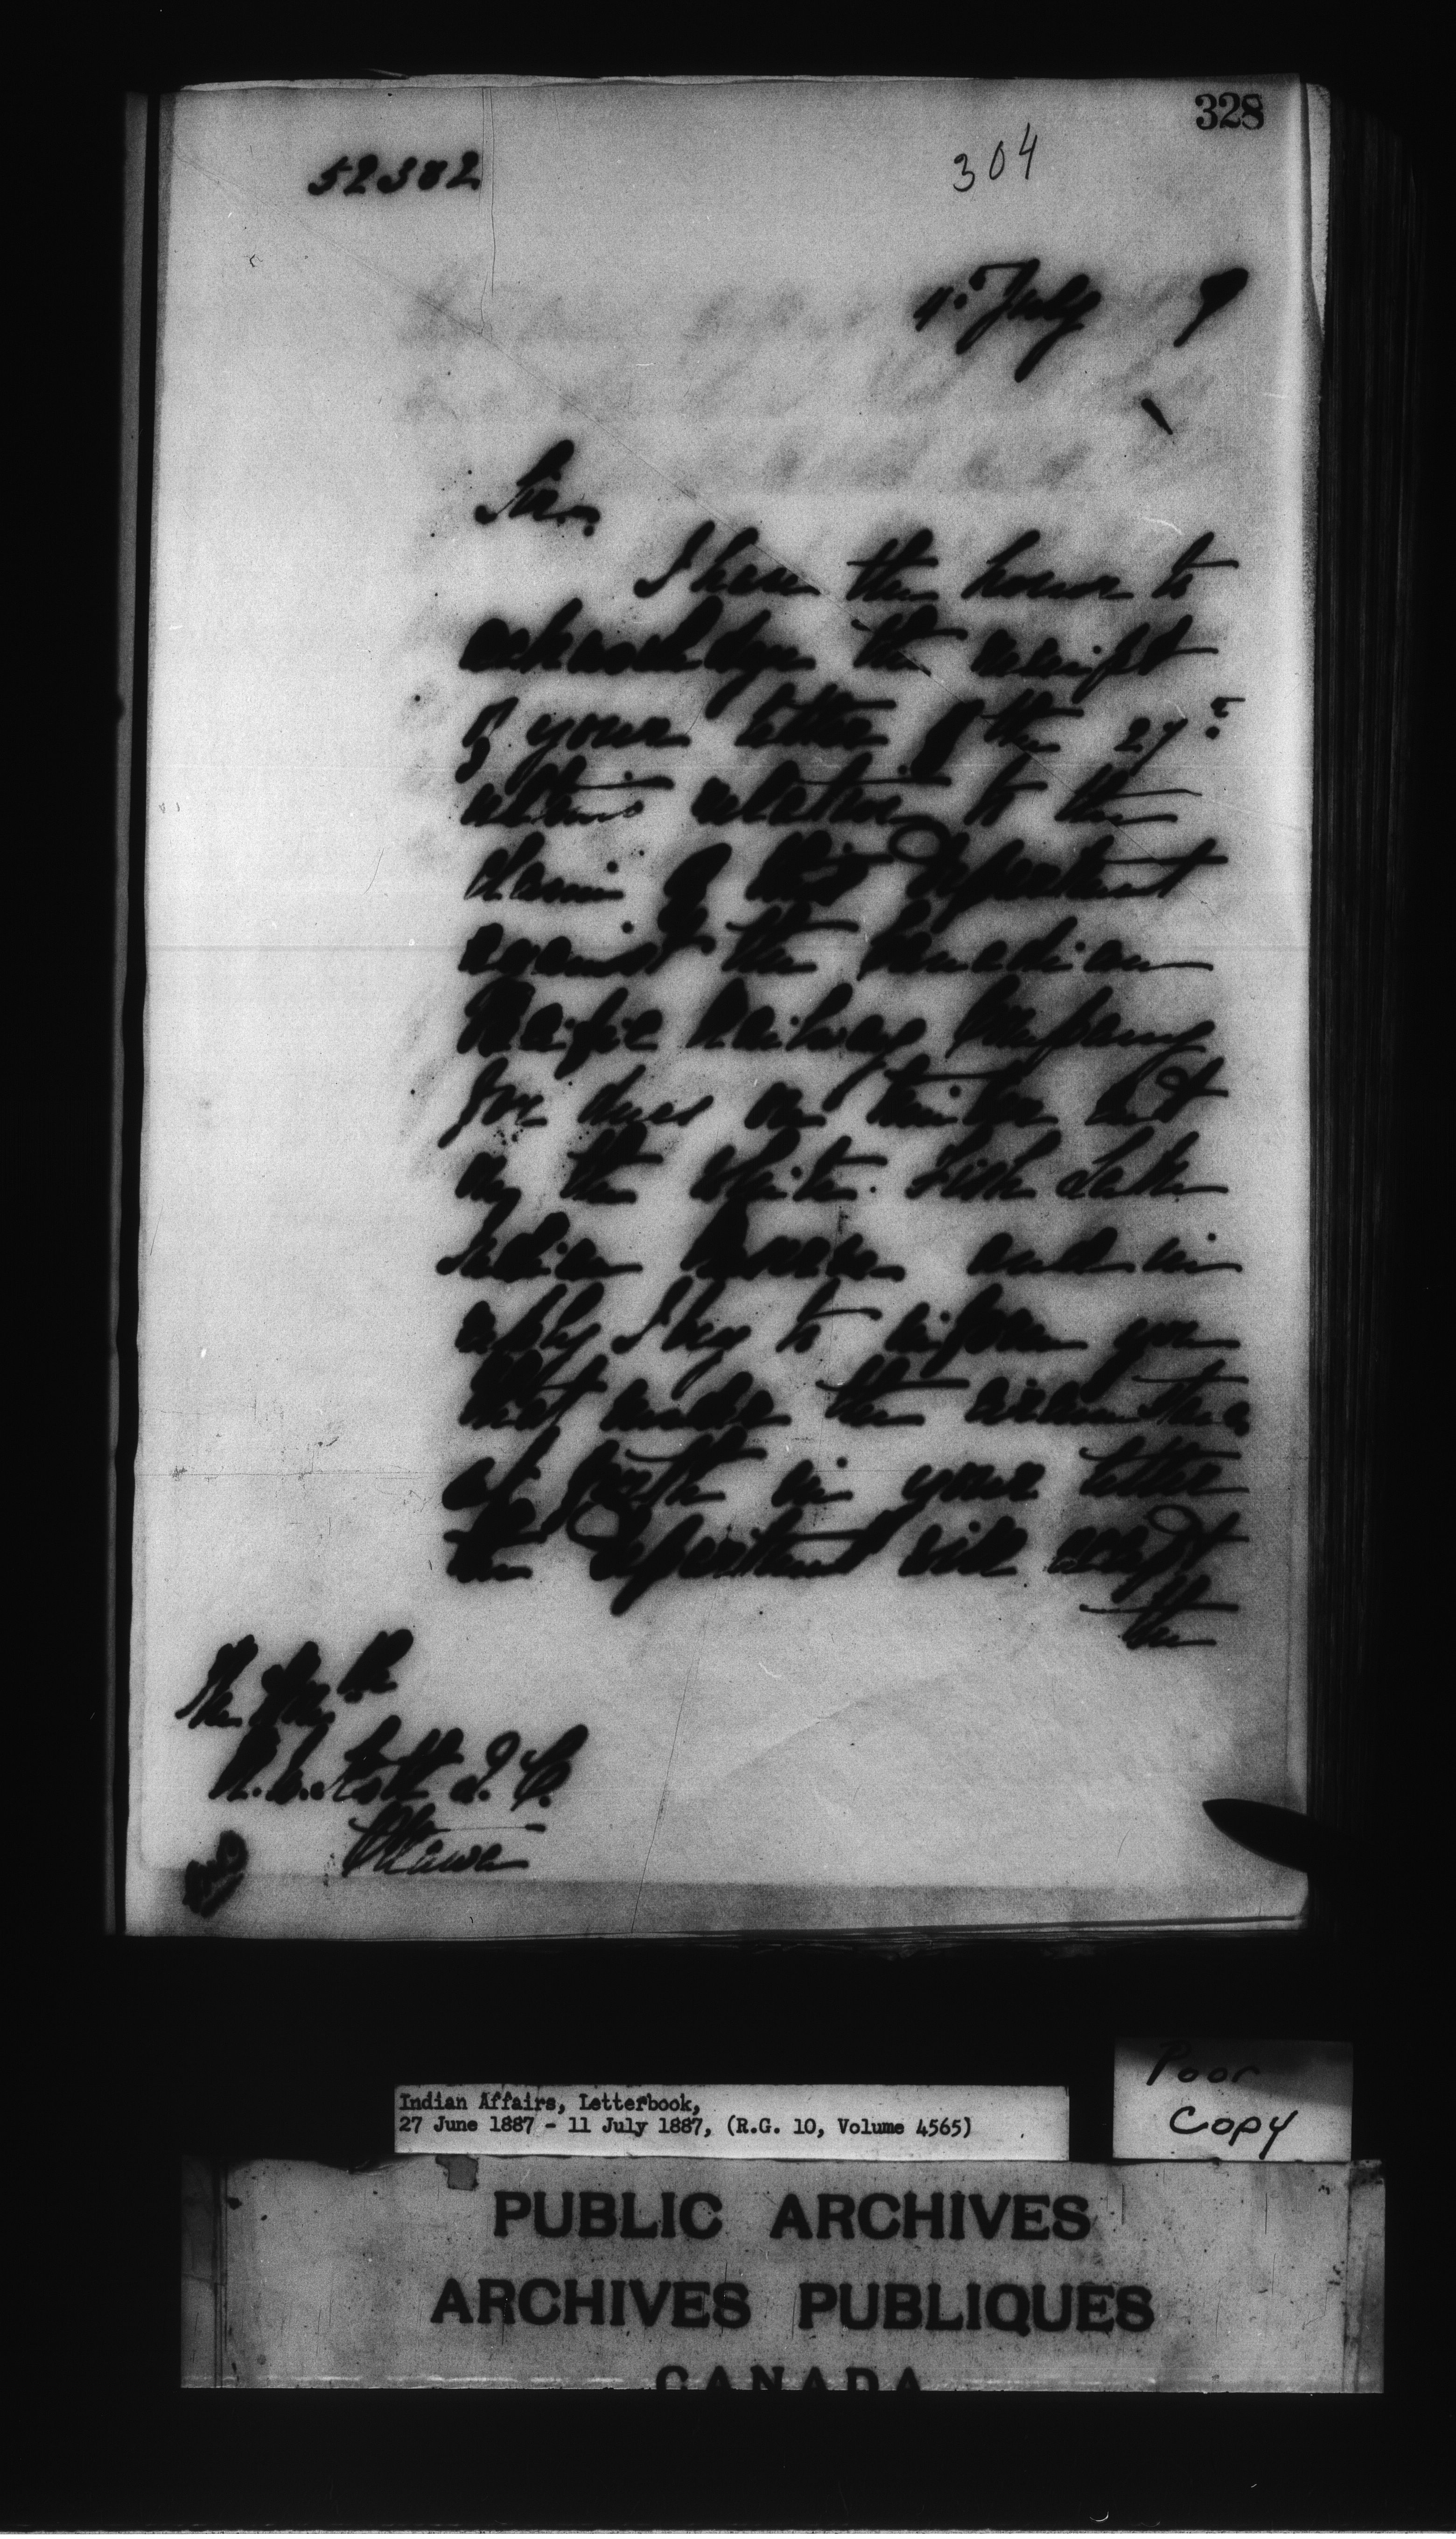 328
304
52382
4th July 7
Sir,
I have the honor to
acknowledge the receipt
of your letter of the 27th
ultimo relative to the
claim of this Department
against the Canadian
Pacific Railway Company
for dues on timber cut
on the White Fish Lake
Indian Reserve and in
reply I beg to inform you
that under the circumstances
set forth in your letter
the Department will accept
the
The Honble
R. W. Scott Q. C.
Ottawa
Poor
Copy
Indian Affairs, Letterbook,
27 June 1887 - 11 July 1887, (R.G. 10, Volume 4565)
PUBLIC ARCHIVES
ARCHIVES PUBLIQUES
CANADA